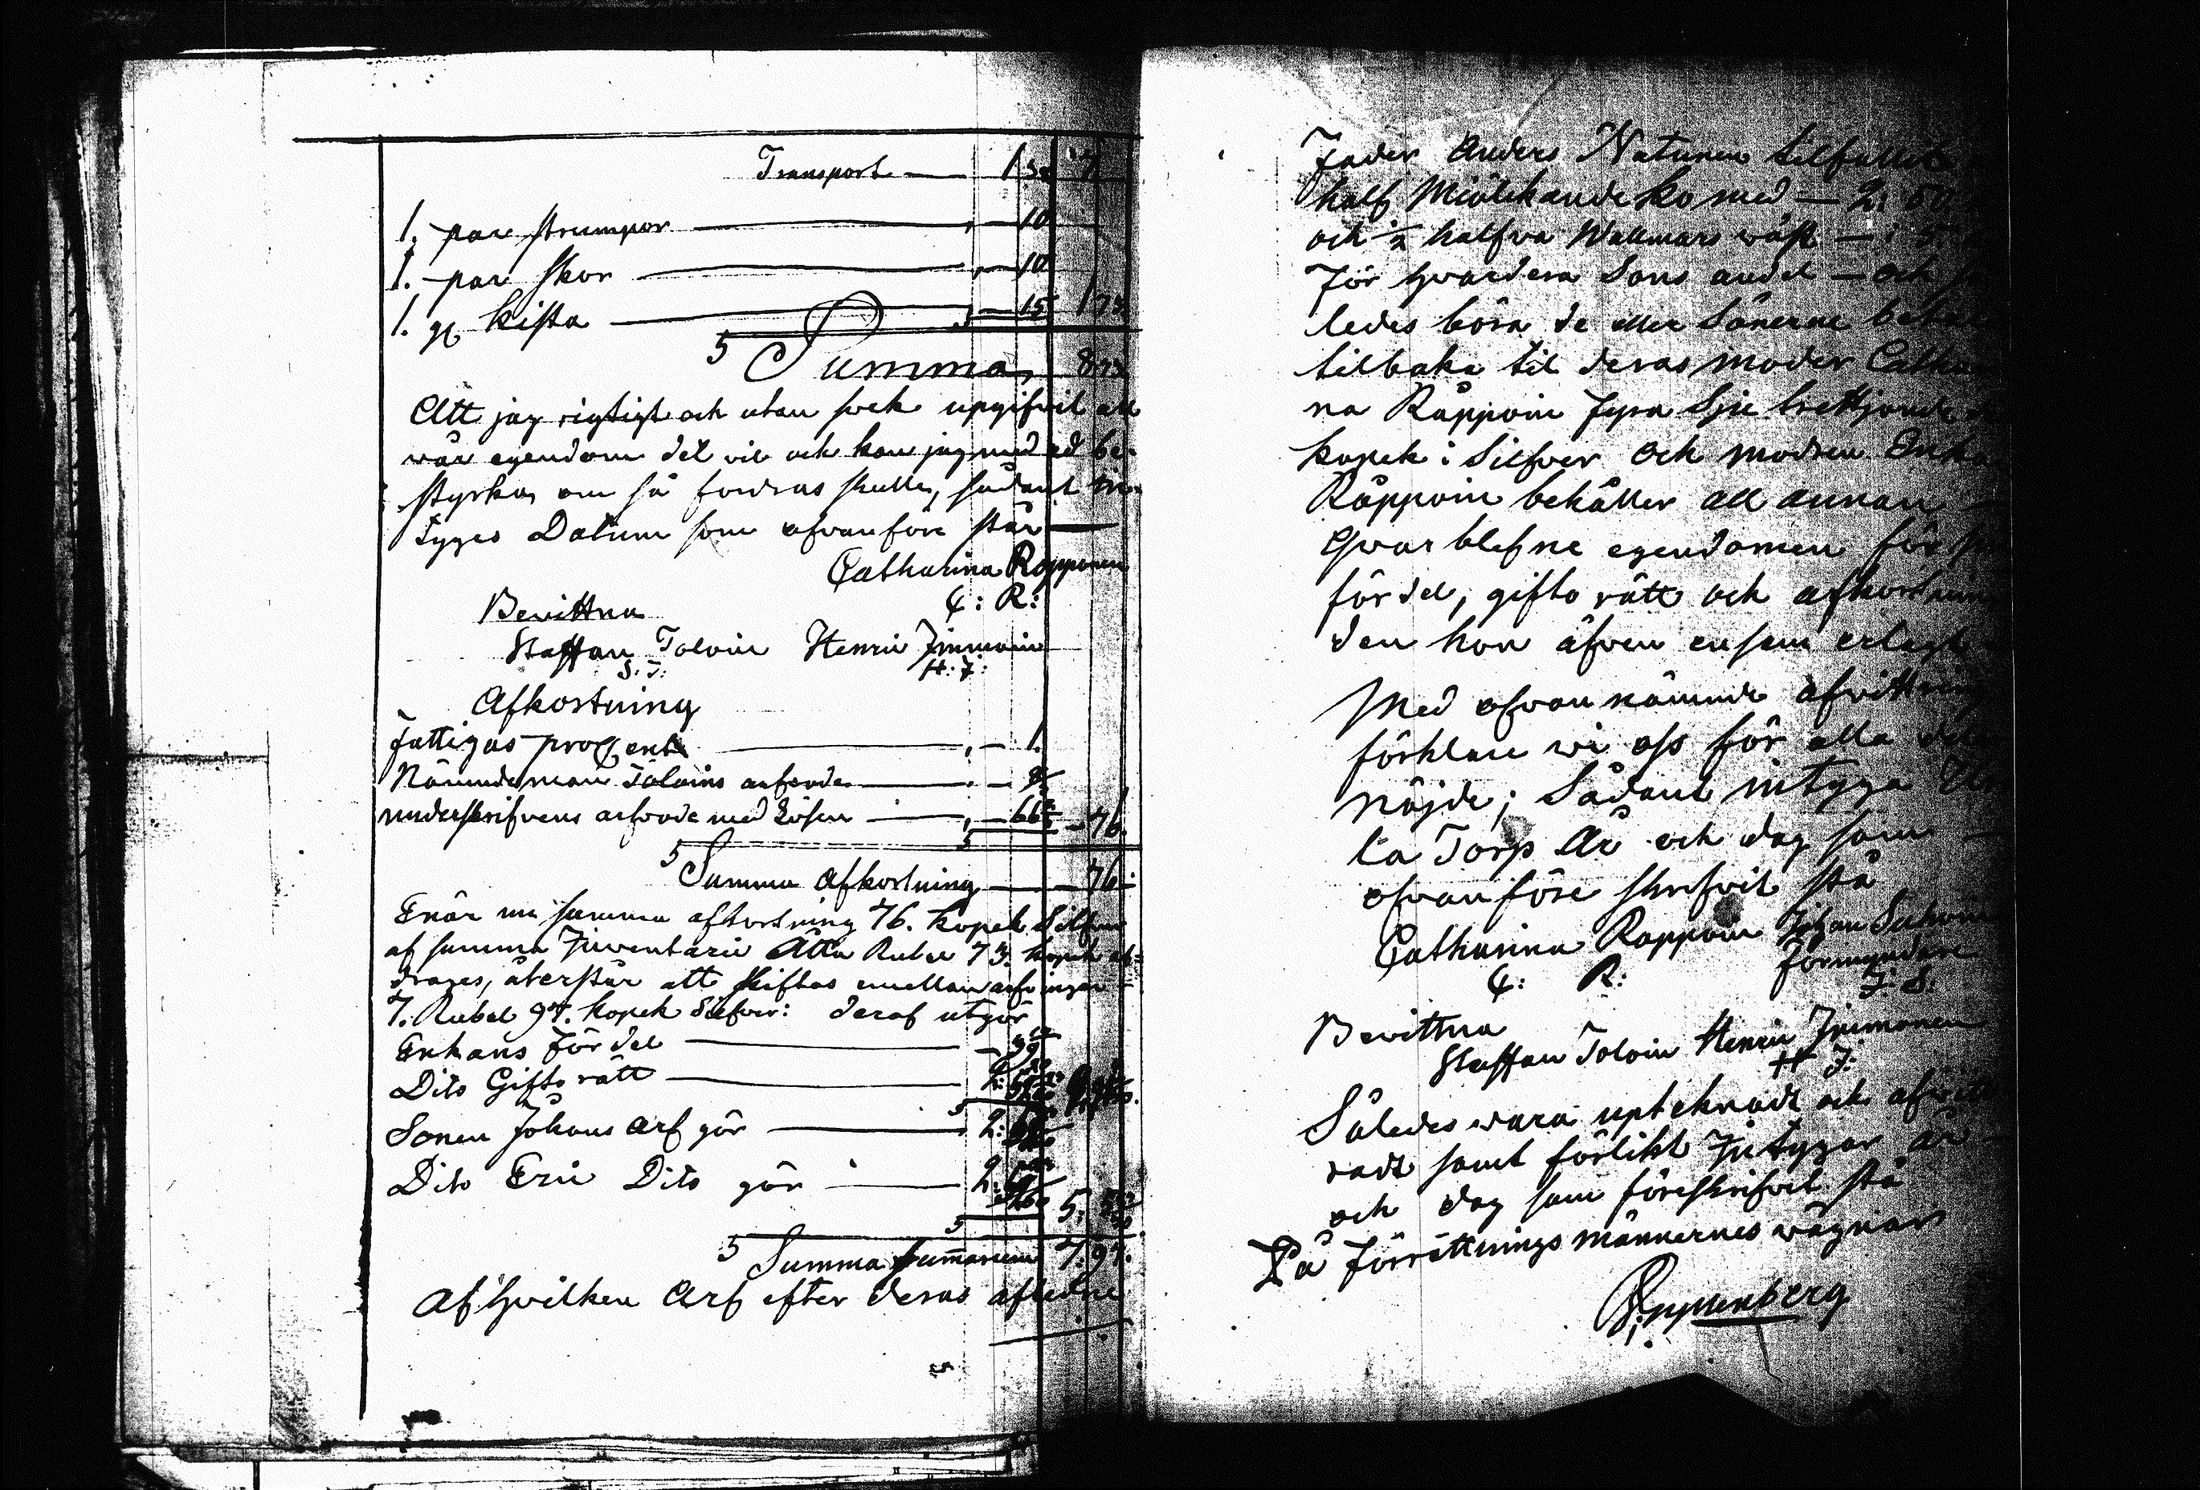 Transport — 1 38 7
1. par strumpor — " — 10
1. par skor — " — 10
1. gl kista — " — 15 1 73
Summa 8 73
Att jag rigtigt och utan svek upgifvit all
vår egendom del vil och kan jag med ed be-
styrka, om så fordras skulle, sådant in-
tyges Datum som ofvanföre står —
Catharina Ropponen
C: R:
Bevittna
Staffan Toloin Henric Immoin
S. T: H: I:
Afkortning
Fattigas procent — " — 1.
Nämndeman Toloins arfvode — " — 8
underskrifvens arfvode med lösen — " — 66 — 76
Summa Afkortning — 76
Enär nu summa afkortning 76. kopek Silfver
af summa Inventarii Åtta Rubel 73. kopek af-
drages, återstår att skiftas emellan arfvingar
7. Rubel 97. kopek Silfver: deraf utgör
Enkans fördel — 39
Dito Gifto rätt — 2:
Sonen Johans Arf gör — 2:
Dito Eric Dito gör — 2:
5:
Summa Summarum 7. 97.
Af hvilken Arf efter deras aflidne
Fader Anders Natunen tilfallit
half Miölkande ko med — 2: 50
och ½ halfva Wallmars wäst —
För hvardera Sons andel — och
ledes böra de eller Sönerne
tilbaka til deras moder Catha
na Räppoin fyra Sju trettjonde
kopek i Silfver Och modren Enka
Räppoin behåller all annan —
qvarblefne egendomen för
fördel, gifto rätt och afkortning
den hon äfven ensam erlagt
Med ofvannämnde afvittring
förklare wi oss för alla
nöjde; Sådant intyga
la Torp År och dag som —
ofvanföre skrifvit stå
Catharina Roppoin Johan
C: R: förmyndare
J: S:
Bevittna
Staffan Toloin Henric Immonen
H I:
Således vara upteknadt och afvitt
radt samt förlikt Intygar år —
och dag som föreskrifvet stå
På förrättnings männernes vägnar